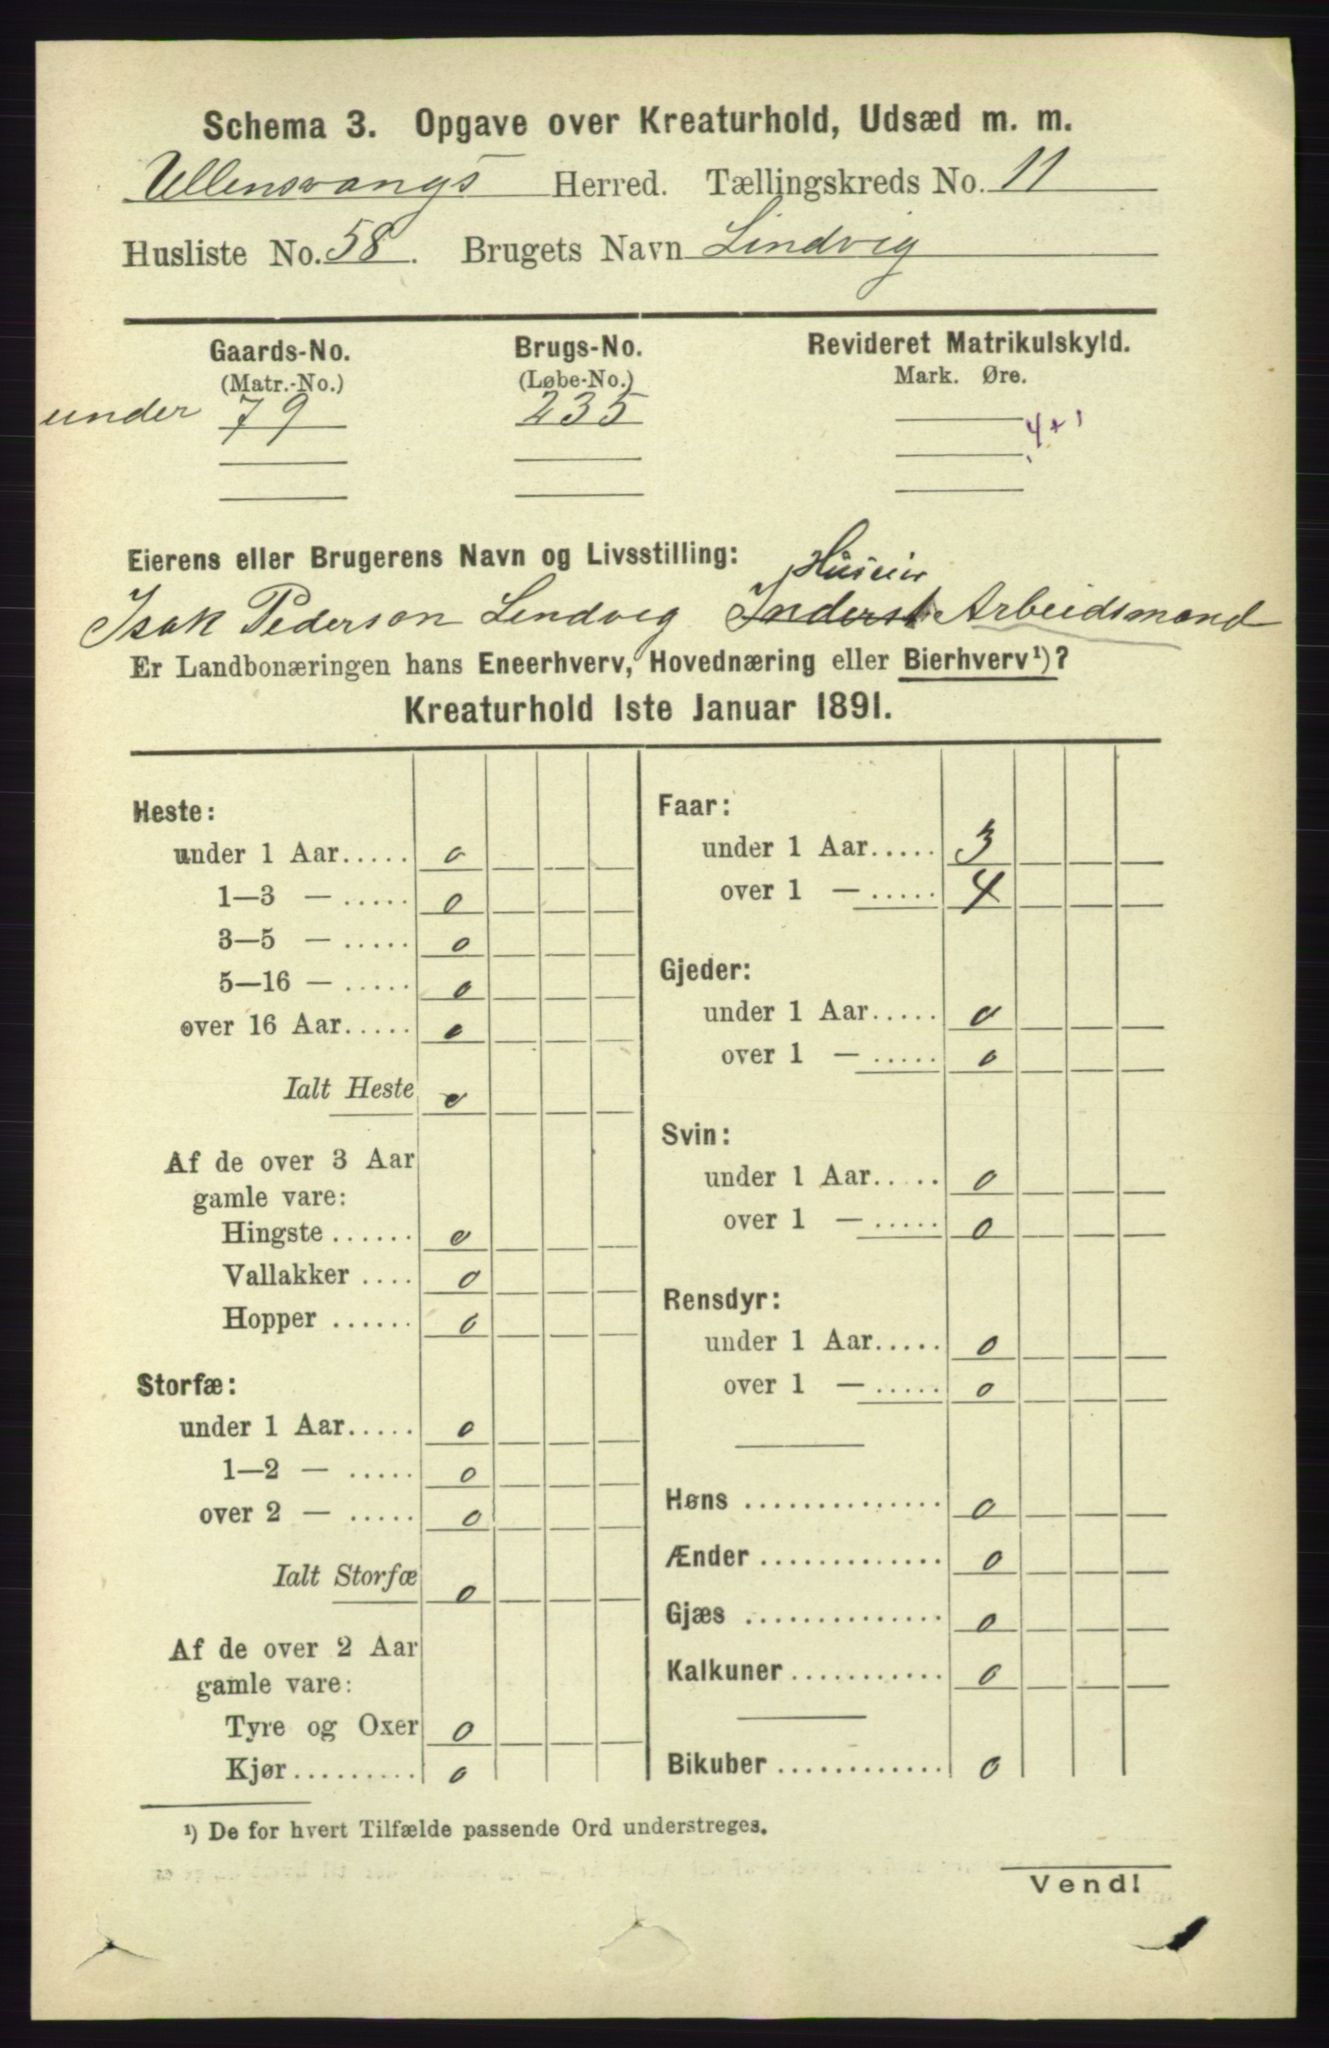 Schema 3. Opgave over Kreaturhold, Udsæd m. m.
Ullensvangs Herred. Tællingskreds No. 11
Husliste No. 58. Brugets Navn Lindvig
Gaards-No. Brugs-No. Revideret Matrikulskyld.
(Matr.-No.) (Løbe-No.) Mark. Øre.
under 79 235
4+1
Eierens eller Brugerens Navn og Livsstilling:
Huseier
Isak Pederson Lindvig Inderst Arbeidsmand
Er Landbonæringen hans Eneerhverv, Hovednæring eller Bierhverv¹)?
Kreaturhold 1ste Januar 1891.
Heste:
under 1 Aar..... 0
1—3 — ..... 0
3—5 — ..... 0
5—16 — ..... 0
over 16 Aar..... 0
Ialt Heste 0
Af de over 3 Aar
gamle vare:
Hingste ...... 0
Vallakker .... 0
Hopper ...... 0
Storfæ:
under 1 Aar..... 0
1—2 — ..... 0
over 2 — ..... 0
Ialt Storfæ 0
Af de over 2 Aar
gamle vare:
Tyre og Oxer 0
Kjør......... 0
Faar:
under 1 Aar..... 3
over 1 — ..... 4
Gjeder:
under 1 Aar..... 0
over 1 — ..... 0
Svin:
under 1 Aar..... 0
over 1 — ..... 0
Rensdyr:
under 1 Aar..... 0
over 1 — ..... 0
Høns .............. 0
Ænder ............. 0
Gjæs .............. 0
Kalkuner........... 0
Bikuber ............ 0
¹) De for hvert Tilfælde passende Ord understreges.
Vend!